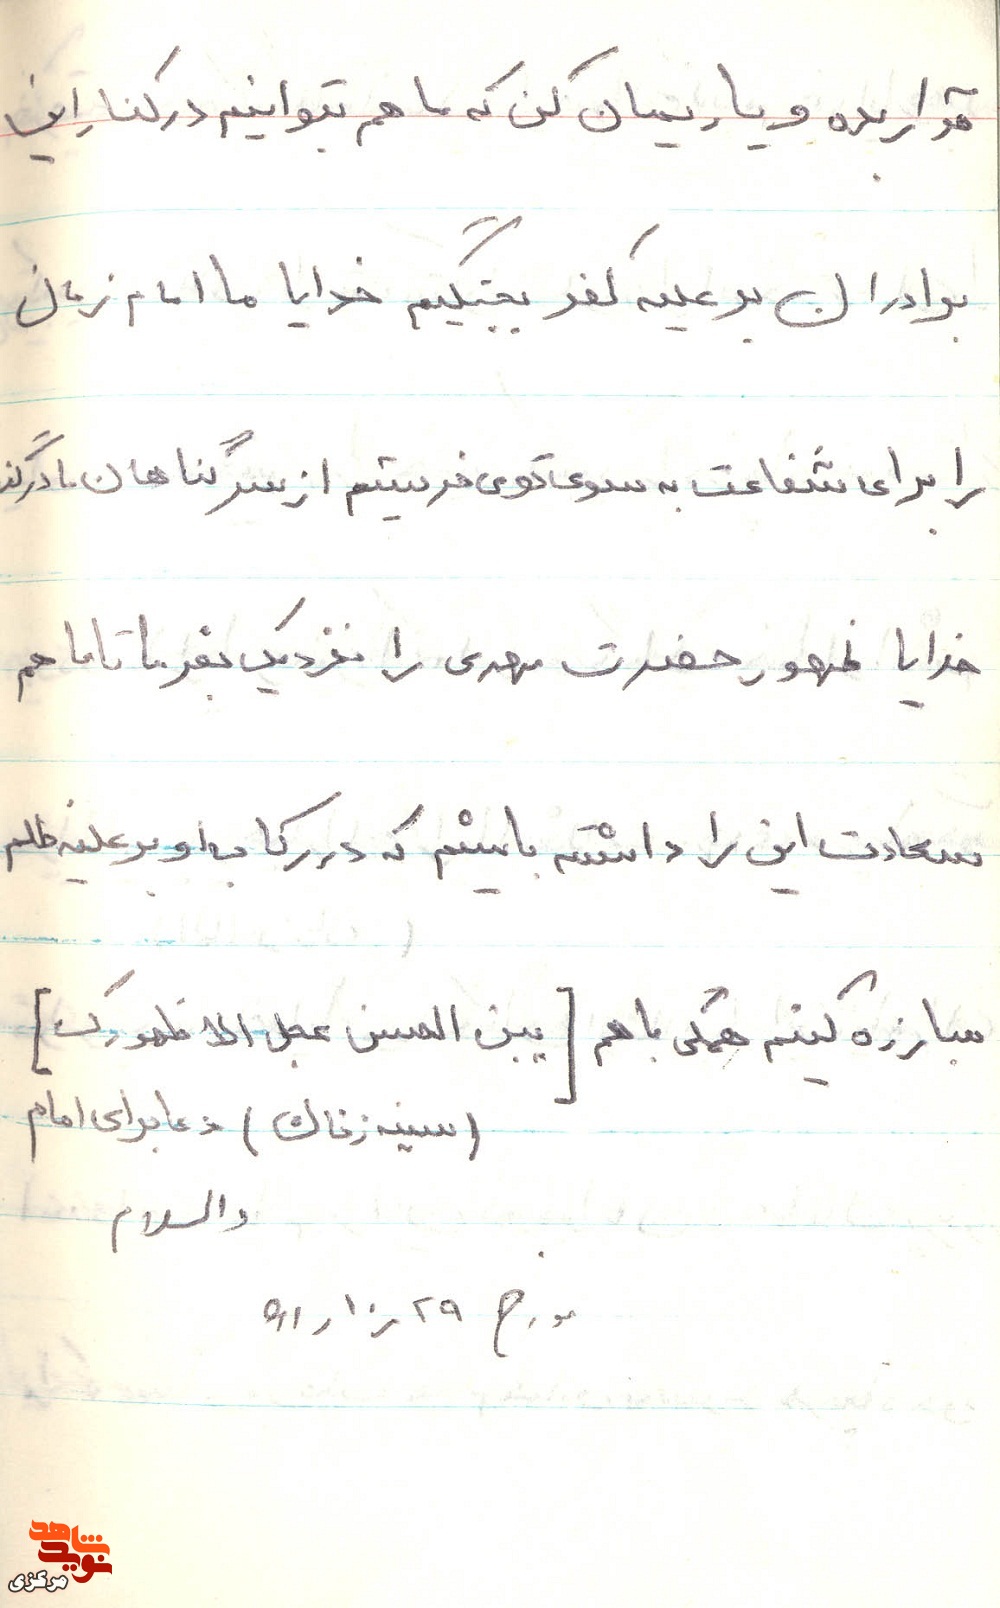 قرار بده و یاریمان کن که ما هم بتوانیم در کنار این
برادران بر علیه کفر بجنگیم خدایا ما امام زمان
را برای شفاعت به سوی تو می فرستیم از سر گناهان ما درگذر
خدایا ظهور حضرت مهدی را نزدیک بفرما تا ما هم
سعادت این را داشته باشیم که در رکاب او بر علیه ظلم
مبارزه کنیم همگی با هم [یبن الحسن عجل الا ظهورک]
(سینه زنان) دعا برای امام
والسلام
مورخ ۲۹ ر ۱۰ ر
نوید شاهد
مرکزی